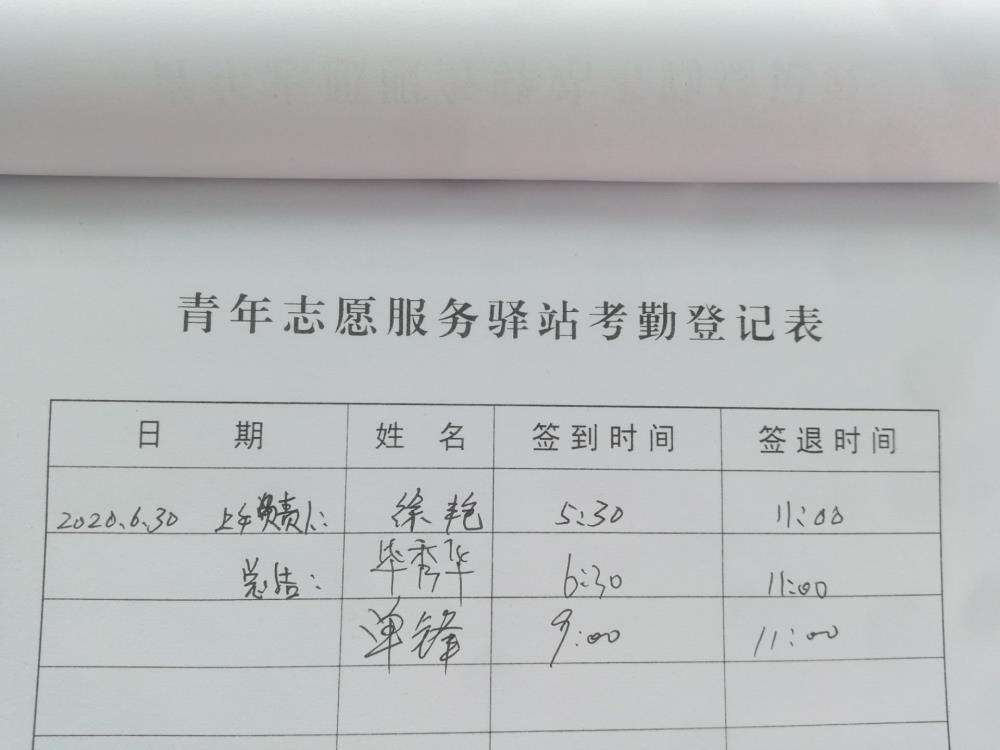 青年志愿服务驿站考勤登记表
日期 姓名 签到时间 签退时间
2020.6.30 上午负责人: 徐艳 5:30 11:00
总结: 毕秀华 6:30 11:00
单锋 9:00 11:00